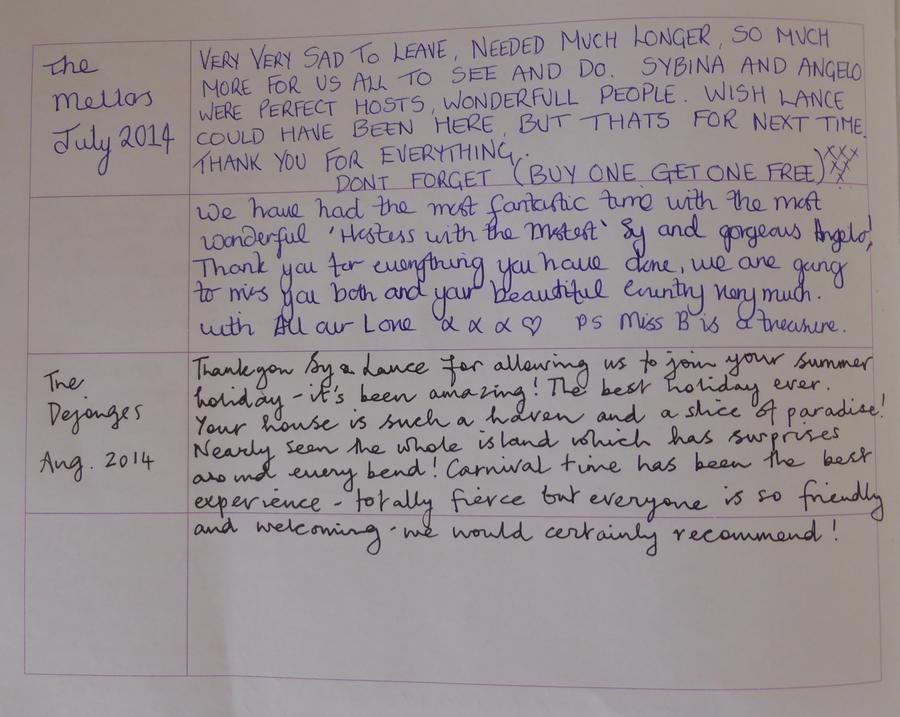 The
Mellors
July 2014
VERY VERY SAD TO LEAVE, NEEDED MUCH LONGER, SO MUCH
MORE FOR US ALL TO SEE AND DO. SYBINA AND ANGELO
WERE PERFECT HOSTS, WONDERFULL PEOPLE. WISH LANCE
COULD HAVE BEEN HERE, BUT THATS FOR NEXT TIME.
THANK YOU FOR EVERYTHING.
DONT FORGET (BUY ONE GET ONE FREE) XXXXXX
We have had the most fantastic time with the most
wonderful 'Hostess with the Mostest' Sy and gorgeous Angelo!
Thank you for everything you have done, we are going
to miss you both and your beautiful Country very much.
with All our Love x x x ♡ PS Miss B is a treasure.
The
Dejonges
Aug. 2014
Thankyou Sy & Lance for allowing us to join your summer
holiday - it's been amazing! The best holiday ever.
Your house is such a haven and a slice of paradise!
Nearly seen the whole island which has surprises
around every bend! Carnival time has been the best
experience - totally fierce but everyone is so friendly
and welcoming - we would certainly recommend!